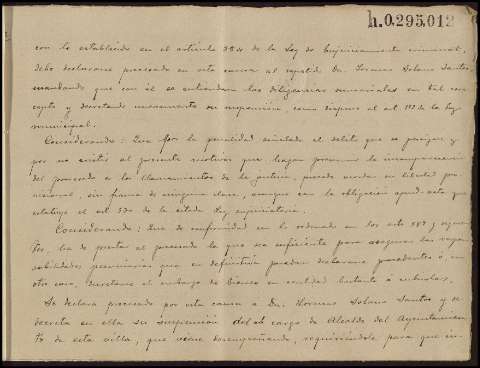 h.0.295.012
con lo establecido en el artículo 384 de la Ley de Enjuiciamiento criminal,
debe declararse procesado en esta causa al repetido Dn. Lorenzo Solano Santos
mandando que con él se entiendan las diligencias sumariales en tal con-
cepto y decretando nuevamente su suspensión, como dispone el art. 192 de la Ley
municipal.
Considerando: Que por la penalidad señalada al delito que se persigue, y
por no existir al presente motivos que hagan presumir la incomparecencia
del procesado a los llamamientos de la justicia, puede quedar en libertad pro-
visional, sin fianza de ninguna clase, aunque con la obligación apud-acta que
establece el art. 530 de la citada Ley enjuiciatoria.
Considerando: Que de conformidad con lo ordenado en los arts 589 y siguien-
tes, ha de prestar el procesado la que sea suficiente para asegurar las respon-
sabilidades pecuniarias que en definitiva puedan declararse procedentes ó en
otro caso, decretarse el embargo de bienes en cantidad bastante á cubrirlas.
Se declara procesado por esta causa a Dn. Lorenzo Solano Santos y se
decreta en ella su suspensión del cargo de Alcalde del Ayuntamien-
to de esta villa, que viene desempeñando, requiriéndole para que in-